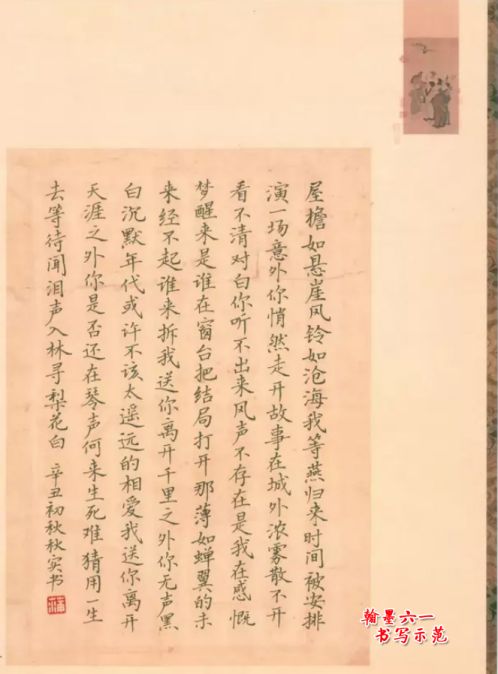 屋檐如悬崖风铃如沧海我等燕归来时间被安排
演一场意外你悄然走开故事在城外浓雾散不开
看不清对白你听不出来风声不存在是我在感慨
梦醒来是谁在窗台把结局打开那薄如蝉翼的未
来经不起谁来拆我送你离开千里之外你无声黑
白沉默年代或许不该太遥远的相爱我送你离开
天涯之外你是否还在琴声何来生死难猜用一生
去等待闻泪声入林寻梨花白 辛丑初秋秋实书
翰墨六一
书写示范